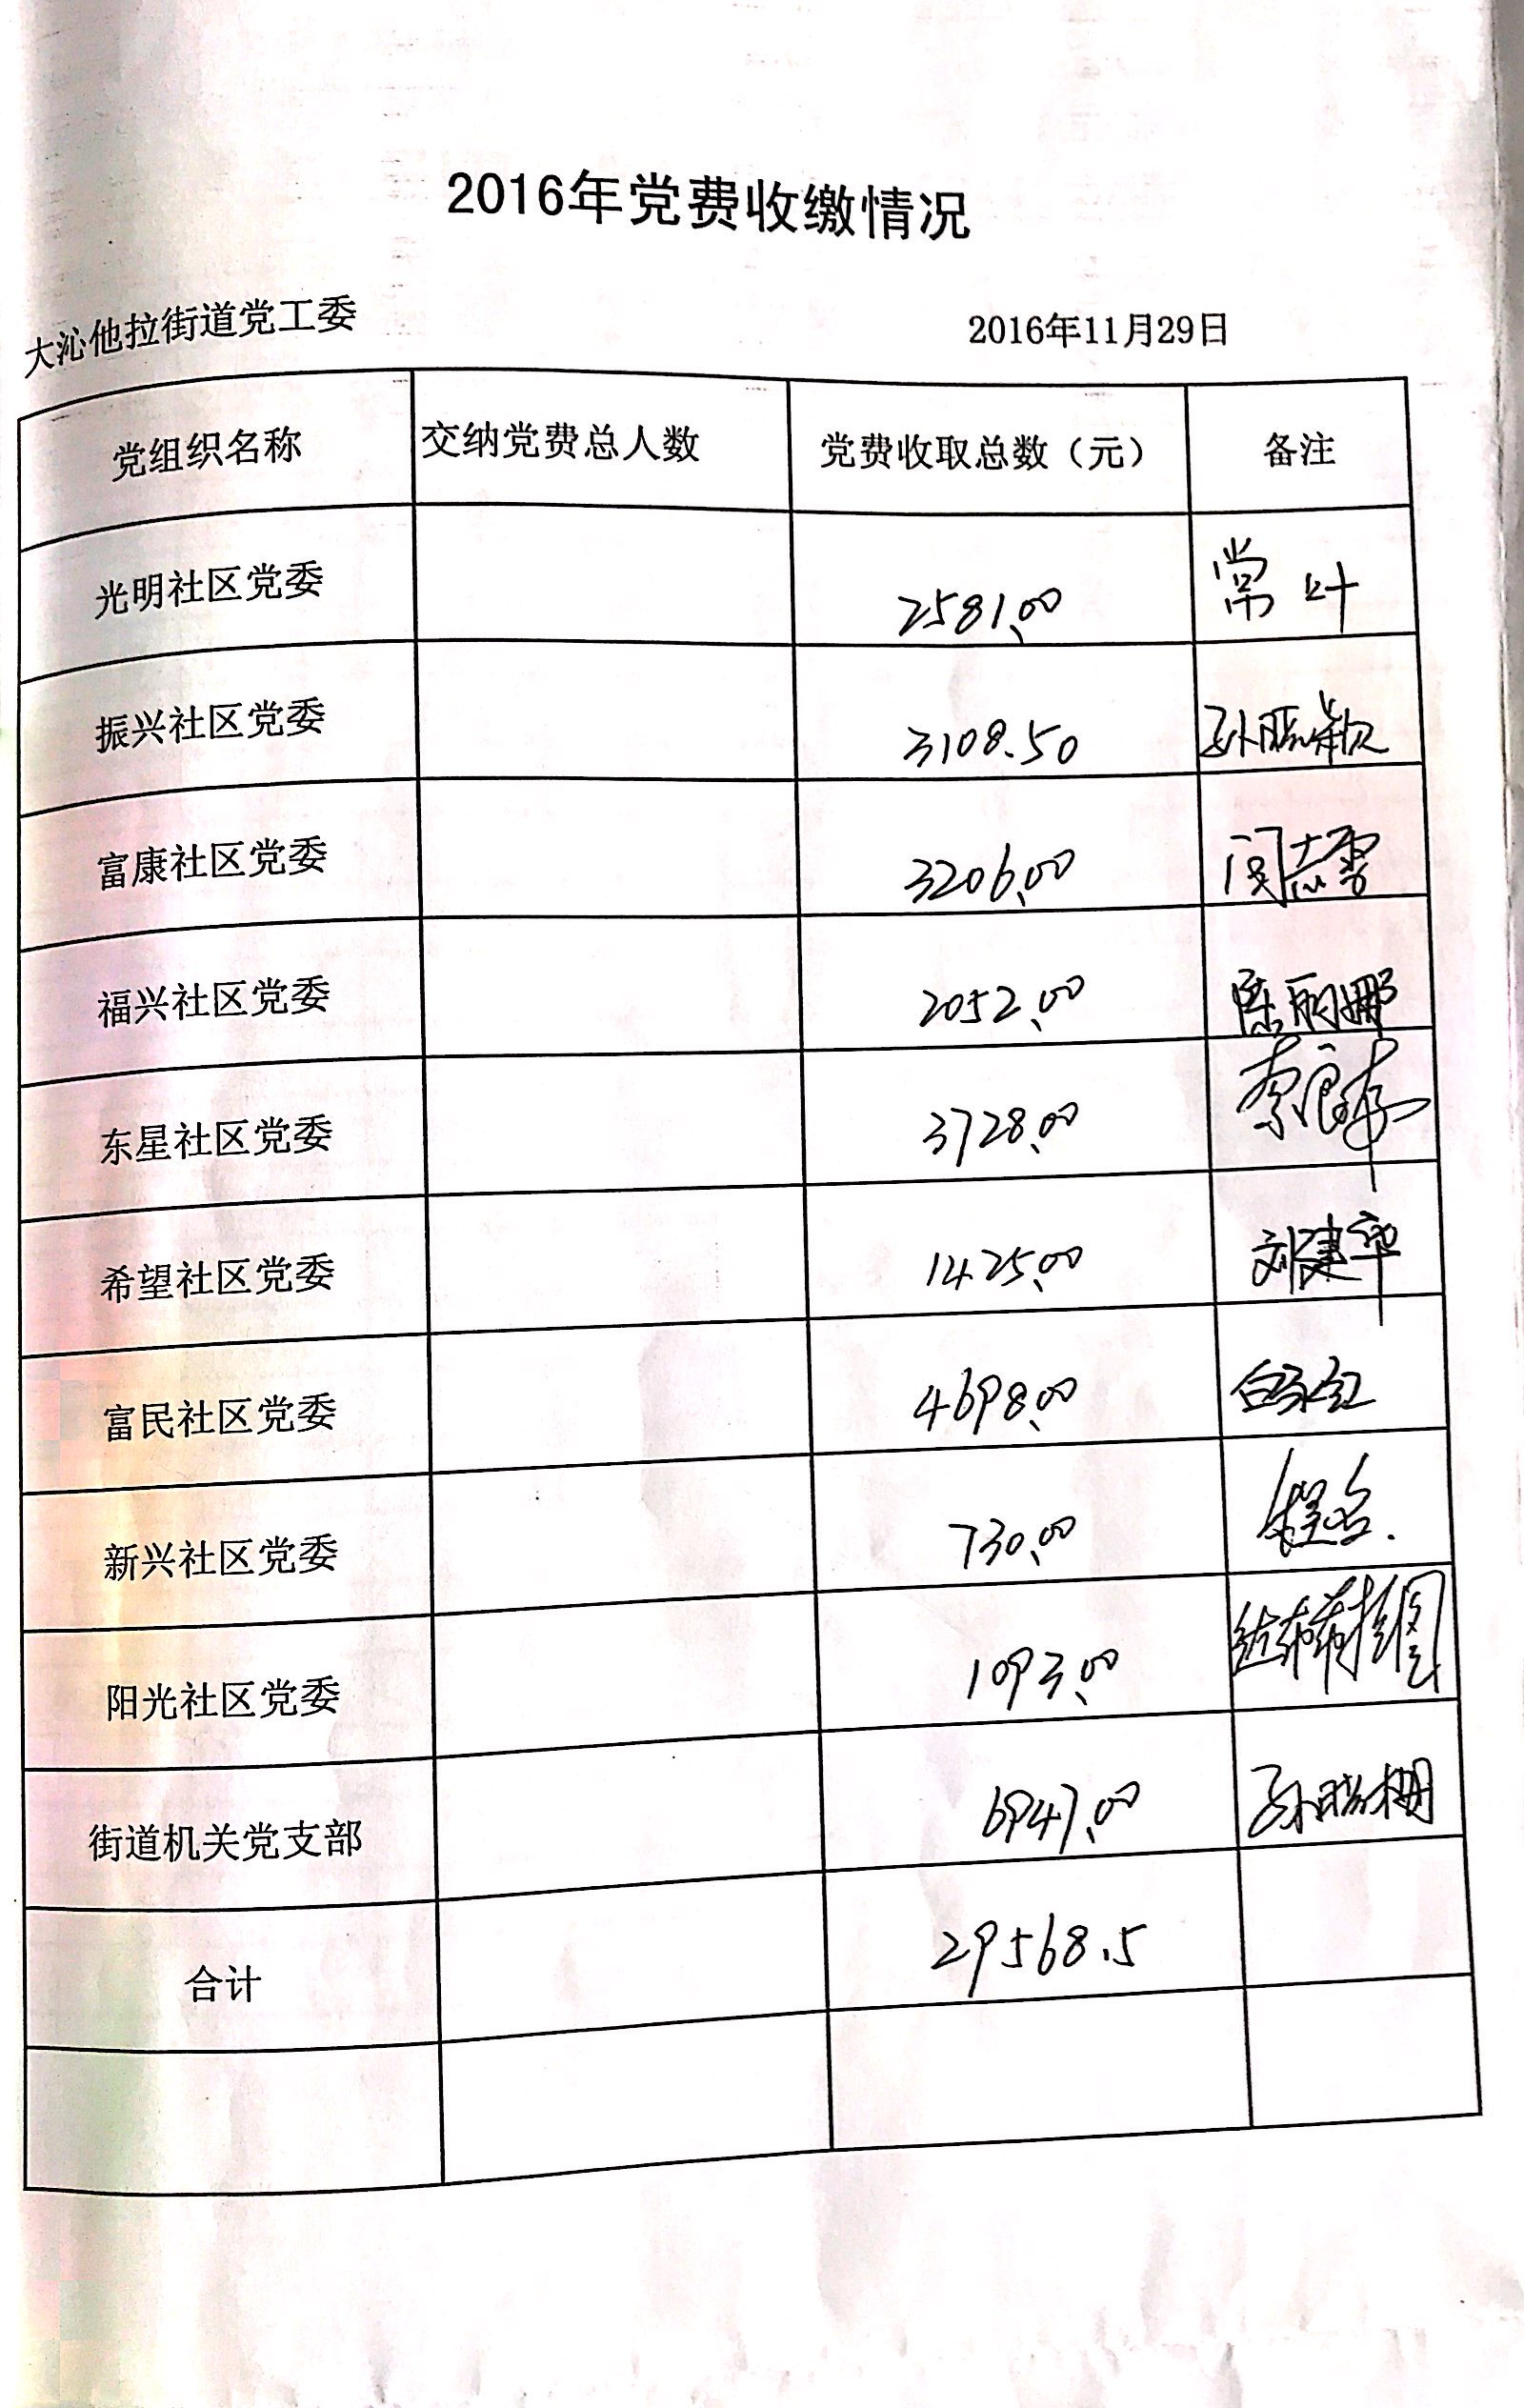 2016年党费收缴情况
大沁他拉街道党工委 2016年11月29日
党组织名称 交纳党费总人数 党费收取总数（元） 备注
光明社区党委 2581.00 常叶
振兴社区党委 3108.50 孙晓颖
富康社区党委 3206.00 闫志雪
福兴社区党委 2052.00 陈丽娜
东星社区党委 3728.00
希望社区党委 1425.00 刘建华
富民社区党委 4698.00
新兴社区党委 730.00
阳光社区党委 1093.00
街道机关党支部 6947.00 孙晓栅
合计 29568.5